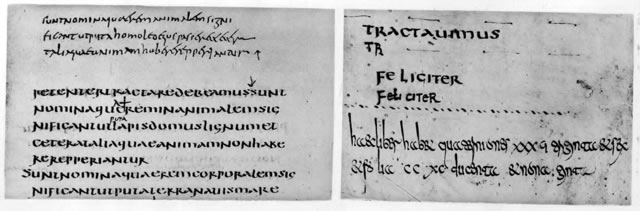 suntnominaquaeremanimalemsigni
ficantutputahomoleoequspiscisetcetera
taliaquaeanimamhaberereperiantur
PETENTERTRACTAREDEBEAMUSSUNT
NOMINAQUAEREMINANIMALEMSIG
puta
NIFICANTUTLAPISDOMUSLIGNUMET
CETERATALIAQUAEANIMAMNONHABE
REREPPERIANTUR
SUNTNOMINAQUAEREMCORPORALEMSIG
NIFICANTUTPUTATERRANAUISMARE
TRACTAUIMUS
TR
FELICITER
FELICITER
liber habet quaestiones xxx
cc xc ducenta nona ginta